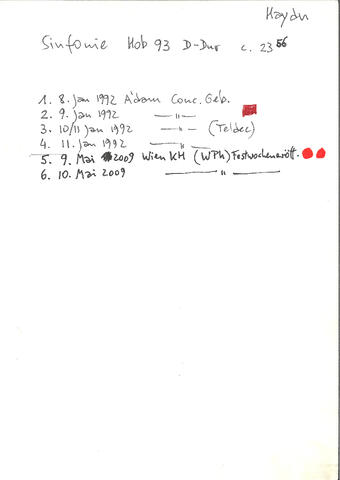 Haydn
Sinfonie Hob 93 D-Dur c. 23 56
1. 8. Jan 1992 A'dam Conc. Geb.
2. 9. Jan 1992 — " —
3. 10/11 Jan 1992 — " — (Teldec)
4. 11. Jan 1992 — " —
5. 9. Mai 2009 Wien KH (WPh) Festwocheneröff.
6. 10. Mai 2009 — " —